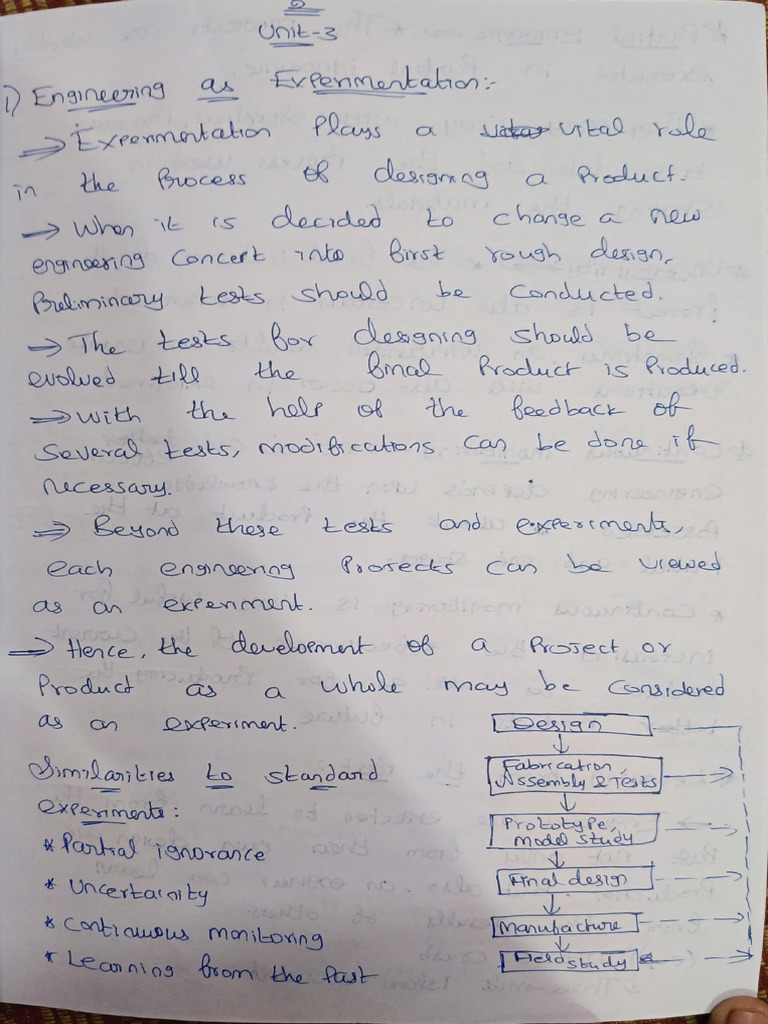 2
Unit-3
1) Engineering as Experimentation:-
⇒ Experimentation Plays a vital role
in the Process of designing a Product.
→ When it is decided to change a new
engineering Concept into first rough design,
Preliminary tests should be Conducted.
⇒ The tests for designing should be
evolved till the final Product is Produced.
⇒ With the help of the feedback of
Several tests, modifications can be done if
necessary.
⇒ Beyond these tests and experiments,
each engineering Projects can be viewed
as an experiment.
⇒ Hence, the development of a Project or
Product as a whole may be Considered
as an experiment.
Similarities to standard
experiments:
* Partial ignorance
* Uncertainity
* Continuous monitoring
* Learning from the Past
Design
Fabrication,
Assembly & Tests
Prototype,
model study
Final design
Manufacture
Field study